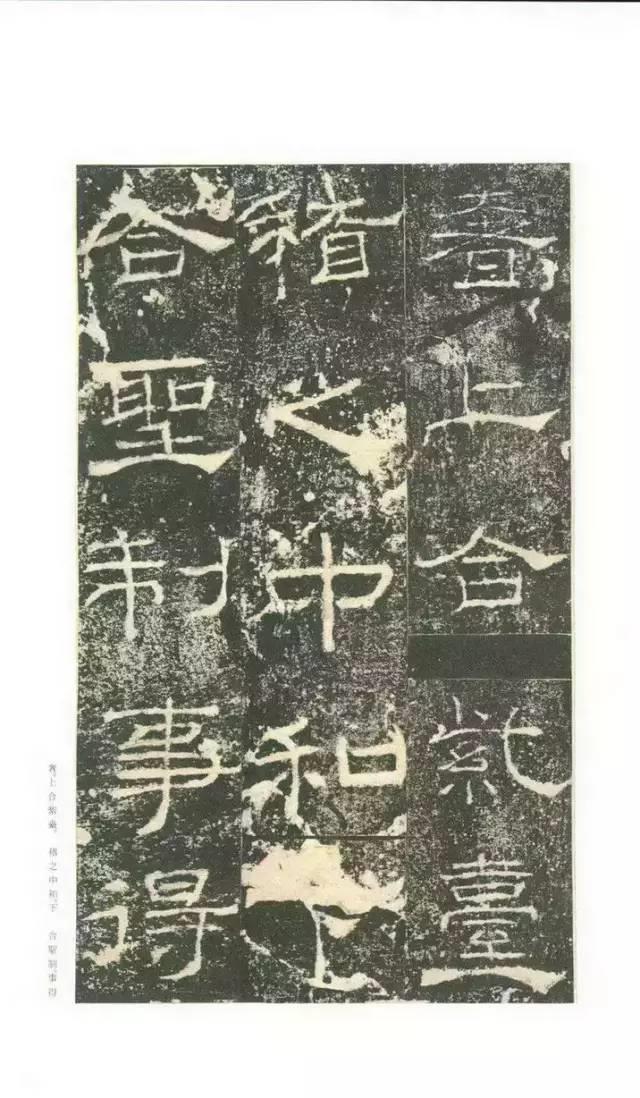 奢上合紫臺
稽之中和下
合聖制事得
奢。上合紫臺，稽之中和；下合聖制，事得